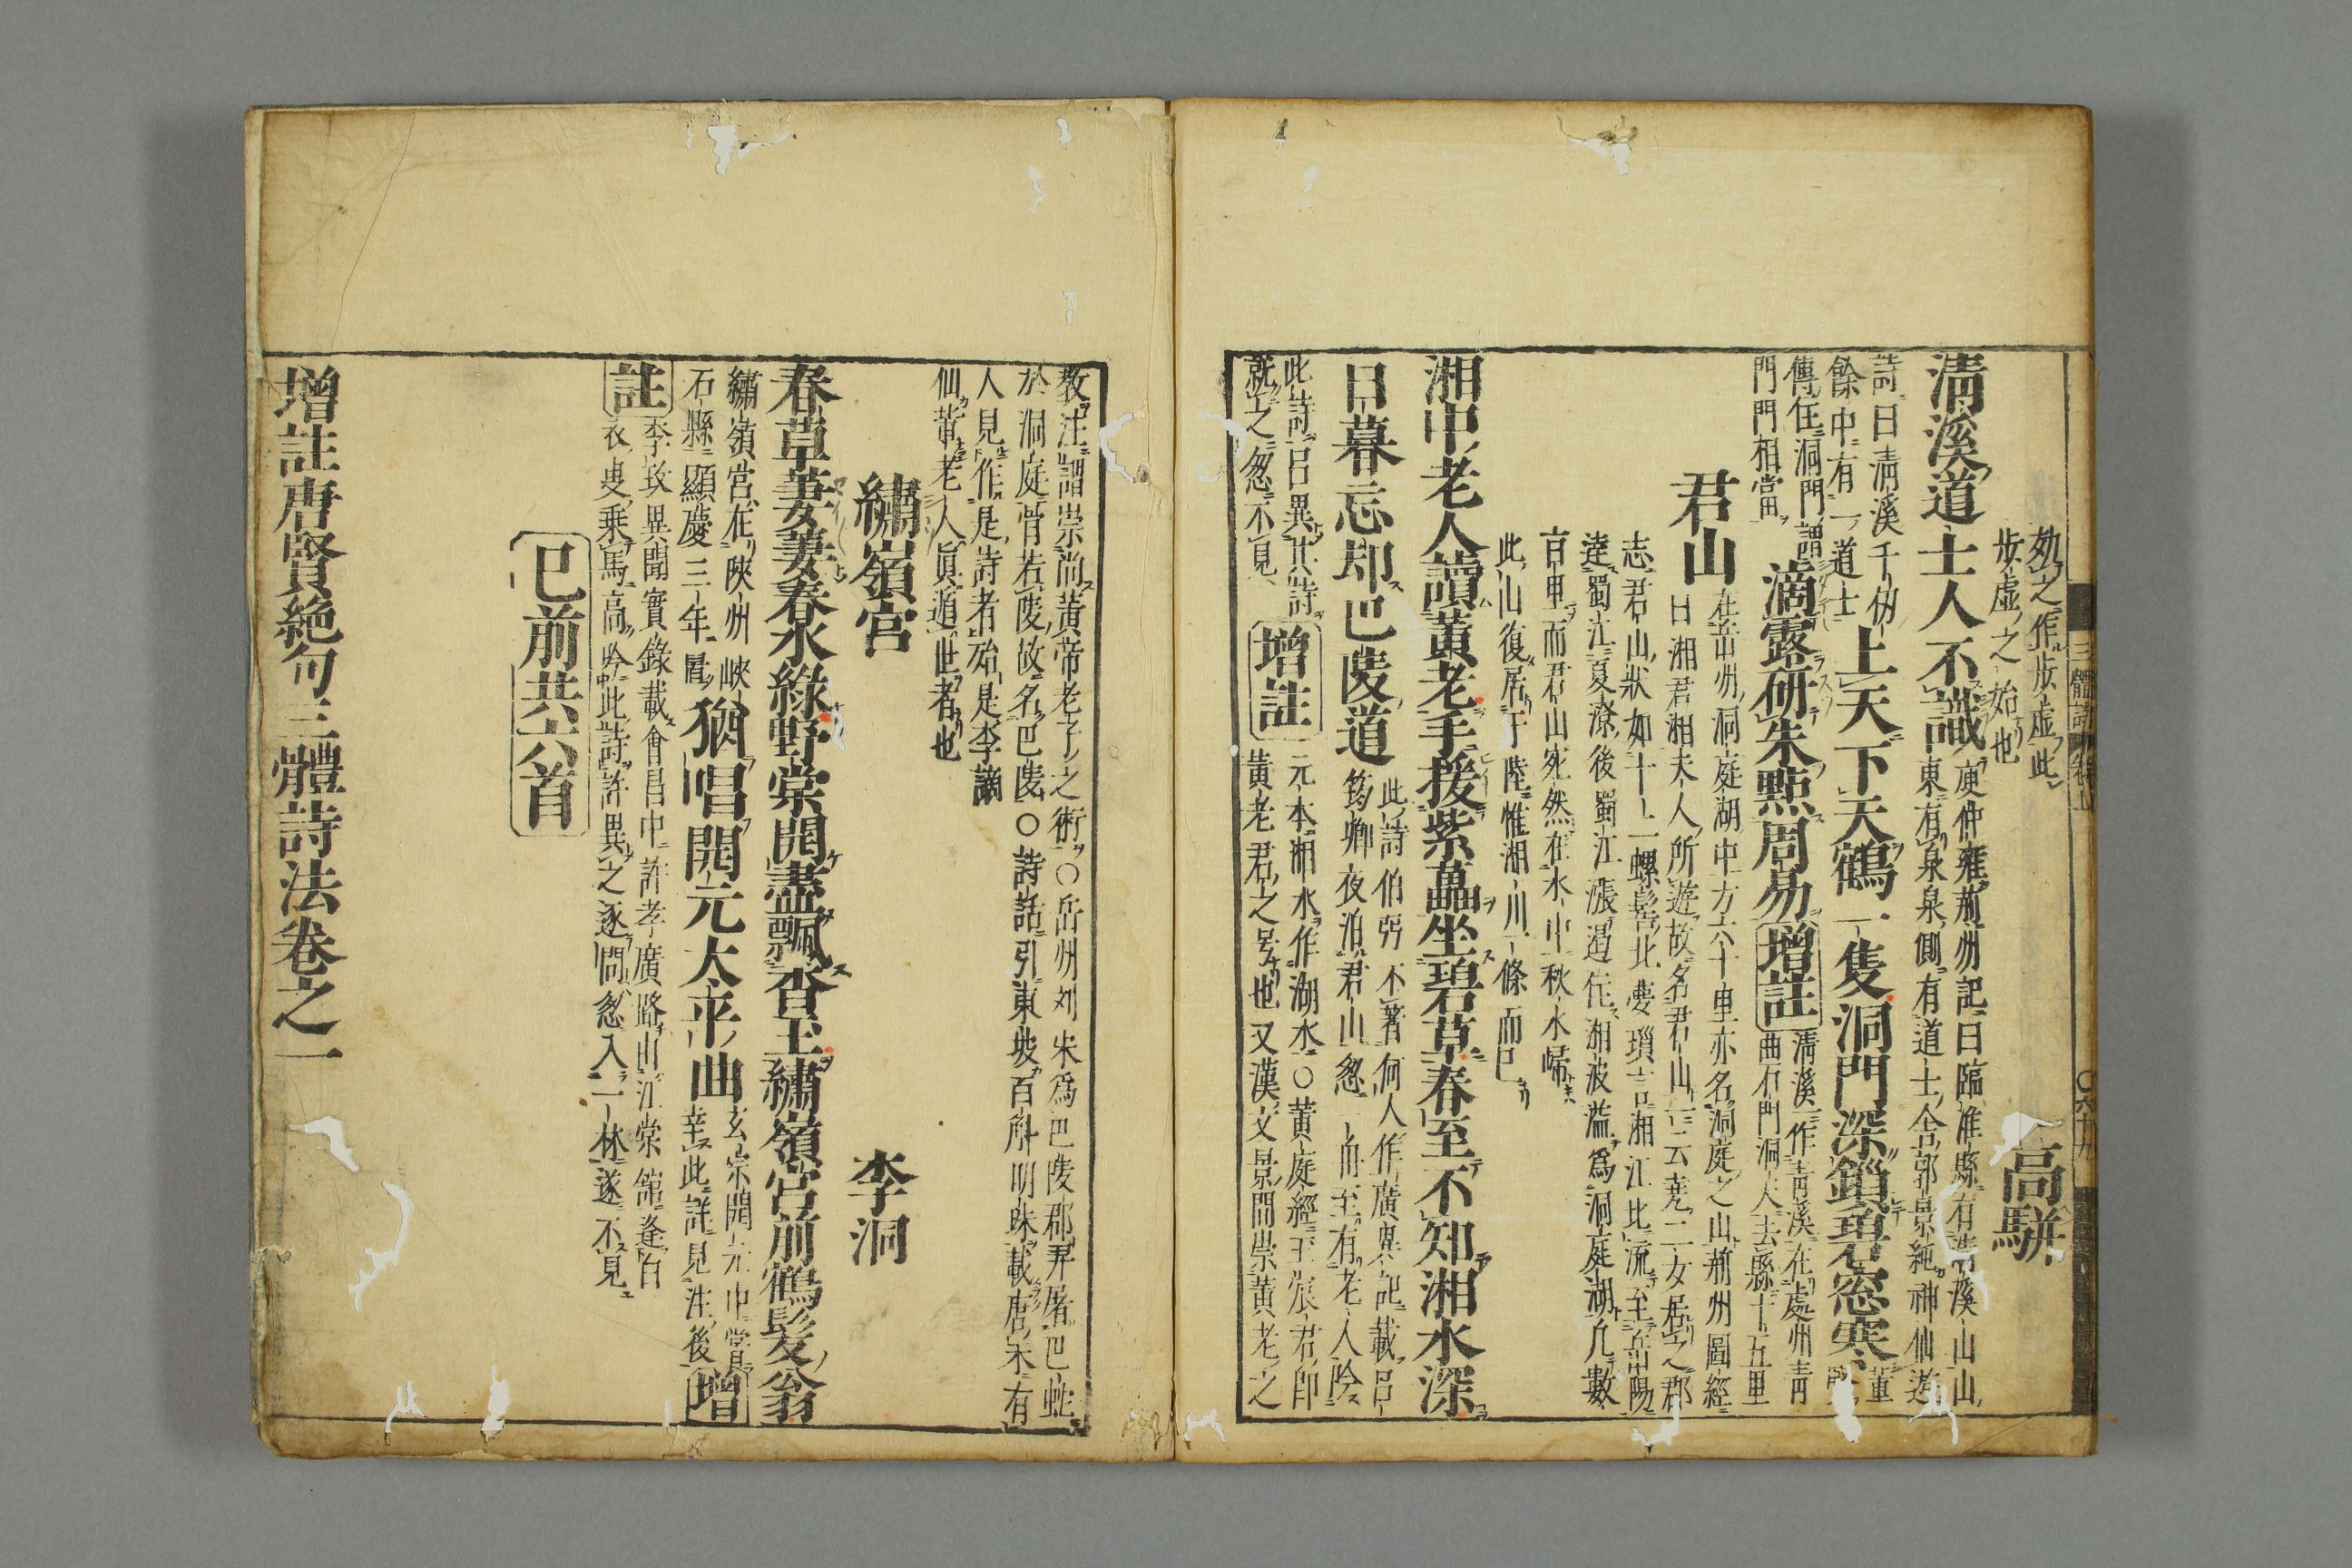 効之作歩虚此
歩虚之始也
高駢
清溪道士人不識
庾仲雍荊州記曰臨淮縣有清溪山山
東有泉泉側有道士舎郭景純神仙遊
詩曰清溪千仞
餘中有一道士
上天下天鶴一隻洞門深鎖碧窓寒
董
傳在洞門
門門相當
滴露研朱點周易
増註
清溪一作青溪在處州青
曲石門洞大去縣十五里
君山
在岳州洞庭湖中方六十里亦名洞庭之山荊州圖經
曰湘君湘夫人所遊故名君山一云堯二女居之郡
志君山狀如十二螺髻北夢瑣言湘江北流至岳陽
達蜀江夏潦後蜀江漲遏住湘波溢爲洞庭湖凡數
百里而君山宛然在水中秋水歸
此山復居于陸惟湘川一條而已
湘中老人讀黃老手援紫藟坐碧草春至不知湘水深
日暮忘却巴陵道
此詩伯弜不著何人作廣異記載呂
筠卿夜泊君山忽一舟至有老人吟
此詩呂異其詩
就之忽不見
増註
元本湘水作湖水○黃庭經王張君卽
黃老君之号也又漢文景間崇黃老之
教注謂崇尚黃帝老子之術○岳州刘宋爲巴陵郡羿屠巴蛇
於洞庭骨若陵故名巴陵○詩話引東坡百斛明珠載唐末有
人見作是詩者殆是李謫
仙歟老人眞遁世者也
繡嶺宮
李洞
春草萋萋春水綠野棠開盡飄香玉繡嶺宮前鶴髮翁
繡嶺宮在陝州峽
石縣顯慶三年置
猶唱開元太平曲
玄宗開元中嘗
幸此詳見注後
増
註
李玫異聞實錄載會昌中許孝廣路山江棠館逢白
衣叟乗馬高吟此詩許異之逐問忽入一林遂不見
已前共六首
増註唐賢絶句三體詩法卷之一